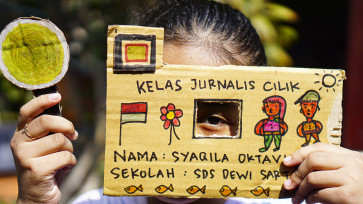 KELAS JURNALIS CILIK
NAMA : SYAQILA OKTAV
SEKOLAH : SDS DEWI SART